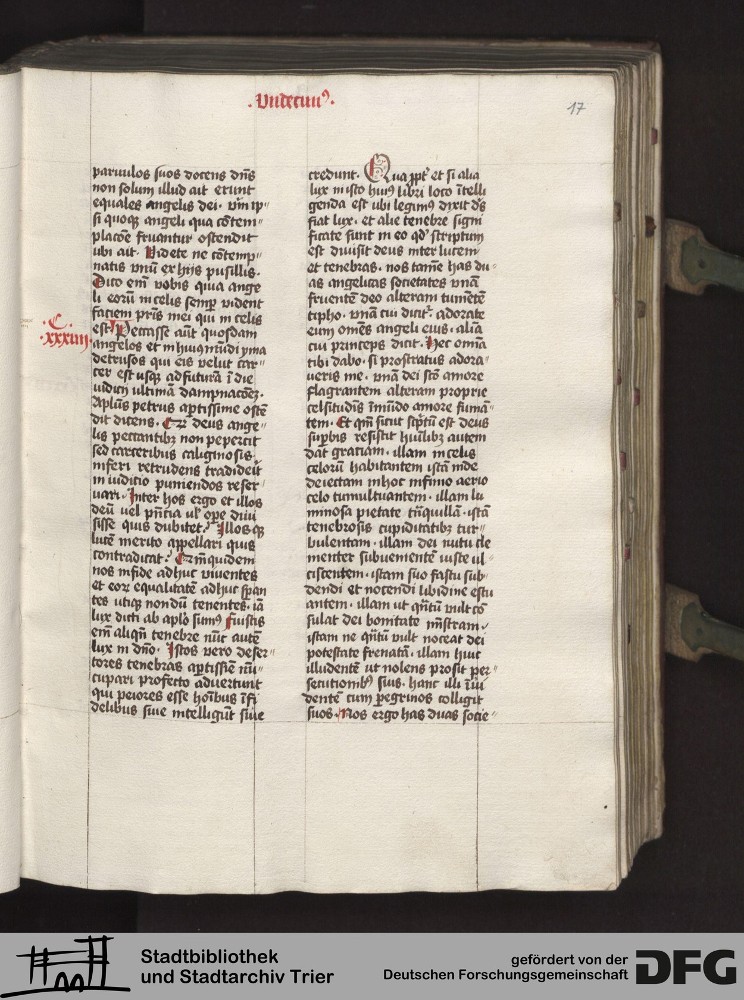 .Vndecimꝰ.
17
paruulos suos docens dn̄s
non solum illud ait erunt
equales angelis dei. vm̄ ip〃
si quoqꝫ angeli qua cōtem〃
placōe fruantur ostendit
ubi ait. Videte ne cōtemp〃
natis vnū ex hijs pusillis.
Dico em̄ vobis quia ange
li eorū in celis semꝑ vident
faciem pr̄is mei qui in celis
est. Peccasse aūt quosdam
.C. xxxiiij.
angelos et in huiꝰ mūdi yma
detrusos qui eis velut car〃
cer est usqꝫ ad futurā ī die
iudicij ultimā dampnacōeꝫ.
Aplūs petrus aꝑtissime ostē
dit dicens. Qꝛ deus ange〃
lis peccantibꝫ non pepercit
sed carceribus caliginosis.
inferi retrudens tradidenū
in iudicio puniendos reser〃
uari. Inter hos ergo et illos
deū vel pn̄tia vl̓ oꝑe diui
sisse quis dubitet? Illosqꝫ
lucē merito appellari quis
contradicat? Qm̄quidem
nos in fide adhuc viuentes
et eoꝝ equalitatē adhuc sꝑan
tes utiqꝫ nondū tenentes. iā
lux dicti ab apl̓o sumꝰ fuistis
em̄ aliqn̄ tenebre nūc autē
lux in dn̄o. Istos vero deser〃
tores tenebras aꝑtissīe nū〃
cupari profecto aduertunt
qui peiores esse hoībus īfi
delibus siue intelligūt siue
credunt. Quaꝓpt̓ et si alia
lux in isto huiꝰ libri loco ītelli
genda est ubi legimꝰ dixit ds̄
fiat lux. et alie tenebre signi
ficate sunt in eo qd̓ scriptum
est diuisit deus inter lucem
et tenebras. nos tamē has du〃
as angelicas societates vnā
fruentē deo alteram tumētē
tipho. vnā cui dicit᷑ adorate
eum om̄es angeli eius. aliā
cui princeps dicit. Hec om̄ia
tibi dabo. si prostratus adora〃
ueris me. vnā dei sc̄o amore
flagrantem alteram proprie
celsitudīs īmūdo amore fumā〃
tem. Et qm̄ sicut sc̄ptū est deus
suꝑbis resistit huīlibꝫ autem
dat gratiam. illam in celis
celorū habitantem istā inde
deiectam in hoc infimo aerio
celo tumultuantem. illam lu
minosa pietate trāquillā. istā
tenebrosis cupiditatibꝫ tur〃
bulentam. illam dei nutu cle
menter subuenientē iuste ul〃
ciscentem. istam suo fastu sub〃
dendi et nocendi libidine estu
antem. illam ut qn̄tū vult cō〃
sulat dei bonitate mīstram.
istam ne qn̄tū vult noceat dei
potestate frenatā. illam huic
illudentē ut nolens prosit per〃
secutionibꝰ suis. hanc illi īui〃
dentē cum ꝑegrinos colligit
suos. Nos ergo has duas socie〃
Stadtbibliothek
und Stadtarchiv Trier
gefördert von der
Deutschen Forschungsgemeinschaft
DFG